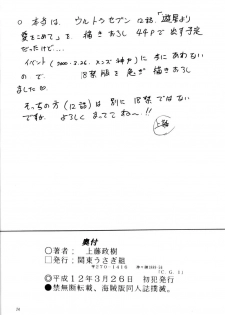 ○ 本当は、ウルトラセブン12話、「遊星より
愛をこめて」を 描きおろし 44Pで 出す予定
だったけど…。
イベント(2000.3.26. メンズ 神戸)に まにあわない
ので、 18禁版を 急ぎ 描きおろし
ました。
そっちの方(12話)は 別に 18禁ではない
ですね。よろしく まっててね〜!!
上藤
奥付
○著者:上藤政樹
□発行:関東うさぎ組
〒270-1418
(C.G.1)
◎平成12年3月26日 初犯発行
●禁無断転載、海賊版同人誌撲滅。